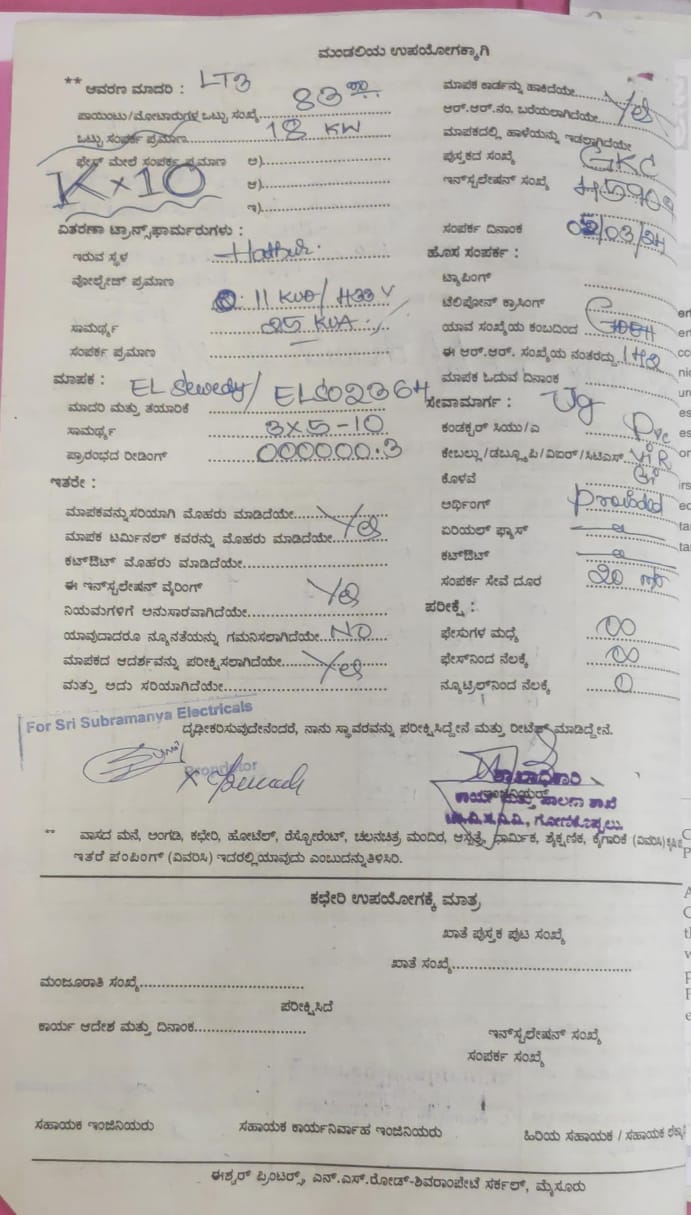 ಮಂಡಲಿಯ ಉಪಯೋಗಕ್ಕಾಗಿ
** ಆವರಣ ಮಾದರಿ : LT3
ಪಾಯಿಂಟು/ಮೋಟಾರುಗಳ ಒಟ್ಟು ಸಂಖ್ಯೆ 83
ಒಟ್ಟು ಸಂಪರ್ಕ ಪ್ರಮಾಣ 18 KW
ಫೇಸ್ ಮೇಲೆ ಸಂಪರ್ಕ ಪ್ರಮಾಣ ಅ)
K×10 ಆ)
ಇ)
ವಿತರಣಾ ಟ್ರಾನ್ಸ್‌ಫಾರ್ಮರುಗಳು :
ಇರುವ ಸ್ಥಳ Hathur
ವೋಲ್ಟೇಜ್ ಪ್ರಮಾಣ
11 KVA/ 433 V
ಸಾಮರ್ಥ್ಯ 25 KVA
ಸಂಪರ್ಕ ಪ್ರಮಾಣ
ಮಾಪಕ : EL Sewedy/ ELS02364
ಮಾದರಿ ಮತ್ತು ತಯಾರಿಕೆ
ಸಾಮರ್ಥ್ಯ 3×5-10
ಪ್ರಾರಂಭದ ರೀಡಿಂಗ್ 000000.3
ಇತರೇ :
ಮಾಪಕವನ್ನು ಸರಿಯಾಗಿ ಮೊಹರು ಮಾಡಿದೆಯೇ
ಮಾಪಕ ಟರ್ಮಿನಲ್ ಕವರನ್ನು ಮೊಹರು ಮಾಡಿದೆಯೇ Yes
ಕಟ್‌ಔಟ್ ಮೊಹರು ಮಾಡಿದೆಯೇ
ಈ ಇನ್‌ಸ್ಟಲೇಷನ್ ವೈರಿಂಗ್ Yes
ನಿಯಮಗಳಿಗೆ ಅನುಸಾರವಾಗಿದೆಯೇ
ಯಾವುದಾದರೂ ನ್ಯೂನತೆಯನ್ನು ಗಮನಿಸಲಾಗಿದೆಯೇ NO
ಮಾಪಕದ ಆದರ್ಶವನ್ನು ಪರೀಕ್ಷಿಸಲಾಗಿದೆಯೇ Yes
ಮತ್ತು ಅದು ಸರಿಯಾಗಿದೆಯೇ
ಮಾಪಕ ಕಾರ್ಡನ್ನು ಹಾಕಿದೆಯೇ
ಆರ್.ಆರ್.ನಂ. ಬರೆಯಲಾಗಿದೆಯೇ Yes
ಮಾಪಕದಲ್ಲಿ ಹಾಳೆಯನ್ನು ಇಡಲಾಗಿದೆಯೇ
ಪುಸ್ತಕದ ಸಂಖ್ಯೆ GKC
ಇನ್‌ಸ್ಟಲೇಷನ್ ಸಂಖ್ಯೆ
ಸಂಪರ್ಕ ದಿನಾಂಕ /03/24
ಹೊಸ ಸಂಪರ್ಕ :
ಟ್ಯಾಪಿಂಗ್
ಟೆಲಿಫೋನ್ ಕ್ರಾಸಿಂಗ್
ಯಾವ ಸಂಖ್ಯೆಯ ಕಂಬದಿಂದ
ಈ ಆರ್.ಆರ್. ಸಂಖ್ಯೆಯ ನಂತರದ್ದು
ಮಾಪಕ ಓದುವ ದಿನಾಂಕ
ಸೇವಾಮಾರ್ಗ : Ug
ಕಂಡಕ್ಟರ್ ಸಿಯು/ಎ Pvc
ಕೇಬಲ್ಲು/ಡಬ್ಲೂಪಿ/ವಿಐರ್/ಸಿಟಿಎಸ್ ViR
ಕೊಳವೆ Gi
ಅರ್ಥಿಂಗ್ Provided
ಏರಿಯಲ್ ಫ್ಯೂಸ್
ಕಟ್‌ಔಟ್
ಸಂಪರ್ಕ ಸೇವೆ ದೂರ 20 mt
ಪರೀಕ್ಷೆ :
ಫೇಸುಗಳ ಮಧ್ಯೆ ∞
ಫೇಸ್‌ನಿಂದ ನೆಲಕ್ಕೆ ∞
ನ್ಯೂಟ್ರಲ್‌ನಿಂದ ನೆಲಕ್ಕೆ 0
For Sri Subramanya Electricals
ದೃಢೀಕರಿಸುವುದೇನೆಂದರೆ, ನಾನು ಸ್ಥಾವರವನ್ನು ಪರೀಕ್ಷಿಸಿದ್ದೇನೆ ಮತ್ತು ರೀಟೆಸ್ಟ್ ಮಾಡಿದ್ದೇನೆ.
Proprietor
ಶಾಖಾಧಿಕಾರಿ
ಇಂಜಿನಿಯರ್
ಕಾರ್ಯ ಮತ್ತು ಪಾಲನಾ ಶಾಖೆ
ಚಾ.ವಿ.ಸ.ನಿ.ನಿ., ಗೋಣಿಕೊಪ್ಪಲು.
** ವಾಸದ ಮನೆ, ಅಂಗಡಿ, ಕಛೇರಿ, ಹೋಟೆಲ್, ರೆಸ್ಟೋರೆಂಟ್, ಚಲನಚಿತ್ರ ಮಂದಿರ, ಆಸ್ಪತ್ರೆ, ಧಾರ್ಮಿಕ, ಶೈಕ್ಷಣಿಕ, ಕೈಗಾರಿಕೆ (ವಿವರಿಸಿ)
ಇತರೆ ಪಂಪಿಂಗ್ (ವಿವರಿಸಿ) ಇದರಲ್ಲಿ ಯಾವುದು ಎಂಬುದನ್ನು ತಿಳಿಸಿರಿ.
ಕಛೇರಿ ಉಪಯೋಗಕ್ಕೆ ಮಾತ್ರ
ಖಾತೆ ಪುಸ್ತಕ ಪುಟ ಸಂಖ್ಯೆ
ಖಾತೆ ಸಂಖ್ಯೆ
ಮಂಜೂರಾತಿ ಸಂಖ್ಯೆ
ಪರೀಕ್ಷಿಸಿದೆ
ಕಾರ್ಯ ಆದೇಶ ಮತ್ತು ದಿನಾಂಕ
ಇನ್‌ಸ್ಟಲೇಷನ್ ಸಂಖ್ಯೆ
ಸಂಪರ್ಕ ಸಂಖ್ಯೆ
ಸಹಾಯಕ ಇಂಜಿನಿಯರು ಸಹಾಯಕ ಕಾರ್ಯನಿರ್ವಾಹ ಇಂಜಿನಿಯರು ಹಿರಿಯ ಸಹಾಯಕ / ಸಹಾಯಕ
ಈಶ್ವರ್ ಪ್ರಿಂಟರ್ಸ್, ಎನ್.ಎಸ್.ರೋಡ್-ಶಿವರಾಂಪೇಟೆ ಸರ್ಕಲ್, ಮೈಸೂರು